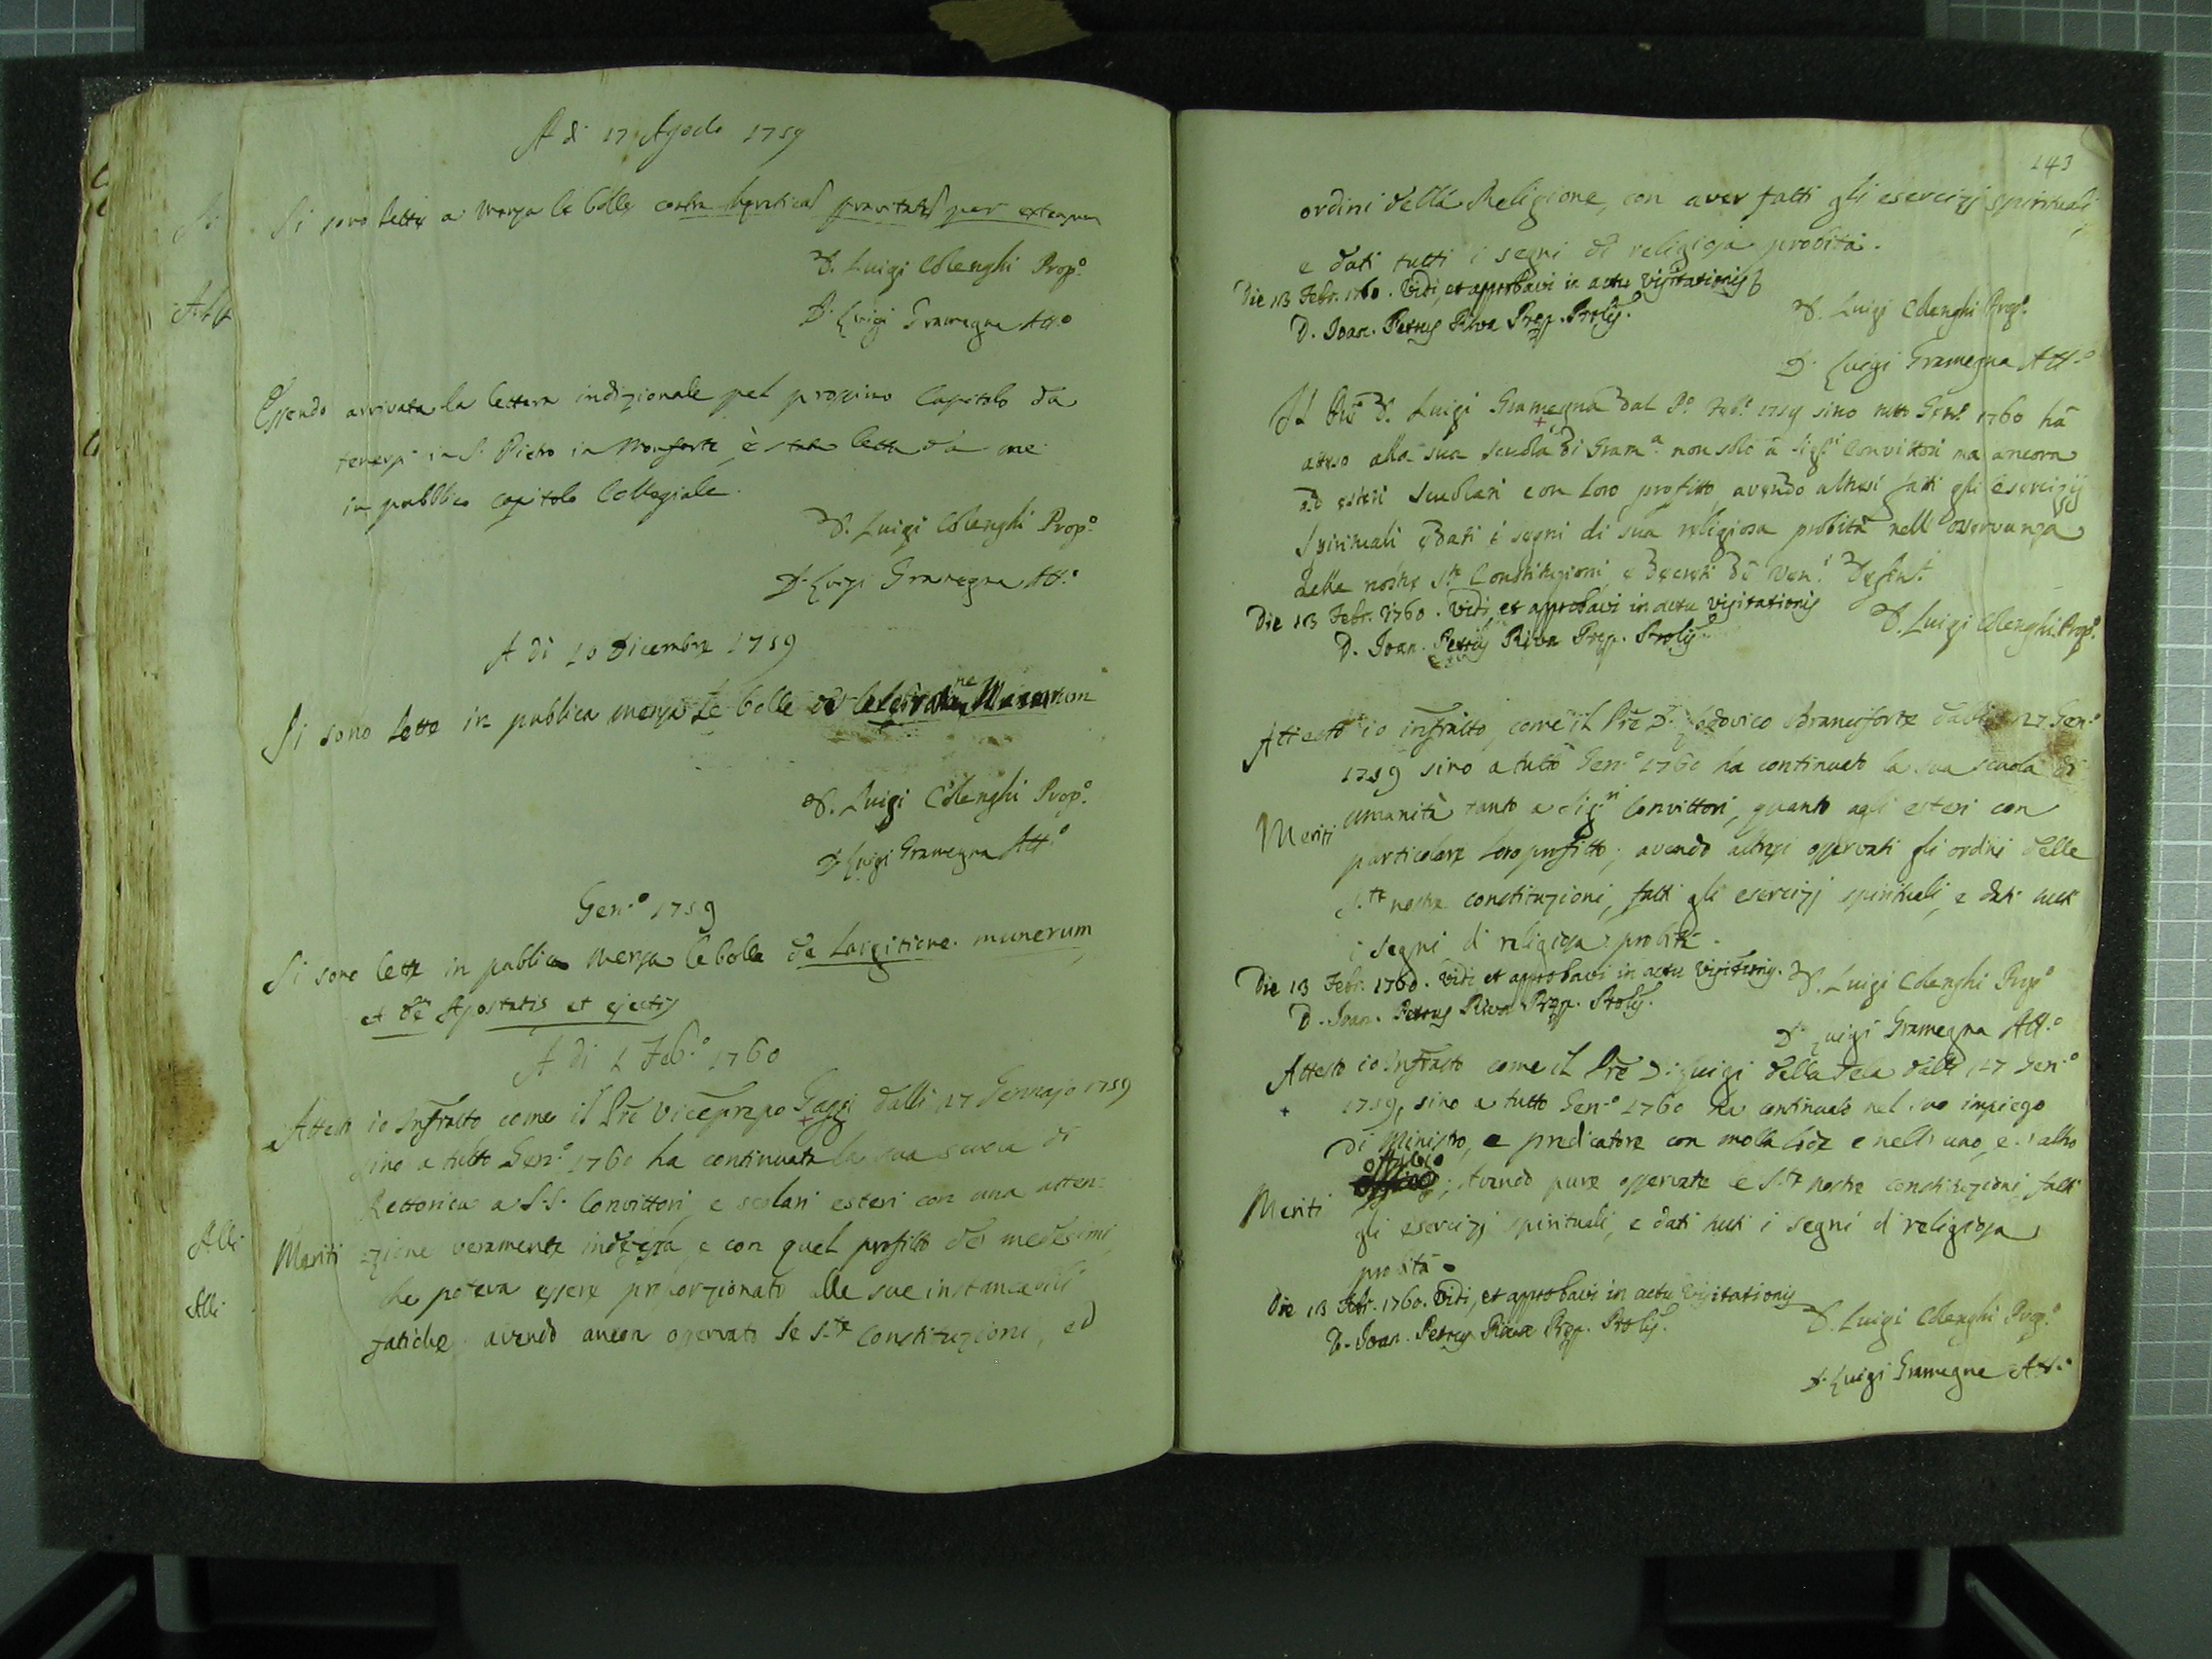 A di 17 Agosto 1759
Si sono lette a mensa le bolle contra hereticas pravitates per extensum
D. Luigi Colenghi Prop.o
D. Luigi Gramegna Att.o
Essendo arrivata la lettera indizionale pel prossimo Capitolo da
tenersi in S. Pietro in Monforte, è stata letta da me
in pubblico capitolo Collegiale.
D. Luigi Colenghi Prop.o
D. Luigi Gramegna Att.o
A di 10 Dicembre 1759
Si sono lette in publica mensa le bolle de celebratione Missarum
D. Luigi Colenghi Prop.o
D. Luigi Gramegna Att.o
Gen.o 1759
Si sono lette in publica mensa le bolle de largitione munerum,
et de Apostatis et ejectis
A di 1 Feb.o 1760
Attesto io Infratto come il Pre Vicepreposto dalli 27 Gennajo 1759
sino a tutto Gen.o 1760 ha continuata la sua scuola di
Rettorica a S.S. Convittori, e scolari esteri con una atten=
Meriti =zione veramente indefessa, e con quel profitto de medesimi,
che poteva essere proporzionato alle sue instancabili
fatiche, avendo ancora osservato le S.te Constituzioni, ed
Alli
Alli
143
ordini della Religione, con aver fatti gli esercizj spirituali,
e dati tutti i segni di religiosa probità.
Die 13 Febr. 1760. Vidi, et approbavi in actu Visitationis
D. Joan. Petrus Riva Prep. Prolis.
D. Luigi Colenghi Prop.o
D. Luigi Gramegna Att.o
Il Pre D. Luigi Gramegna dal P.o Feb.o 1759 sino tutto Gen.o 1760 hà
atteso alla sua scuola di Gram.a non solo a Sig.ri Convittori ma ancora
ad esteri scuolari con loro profitto avendo altresì fatti gli esercizij
spirituali e dati i segni di sua religiosa probità nell'osservanza
delle nostre S.te Constituzioni, e decreti de Ven. Defin.i
Die 13 Febr. 1760. Vidi, et approbavi in actu visitationis
D. Joan. Petrus Riva Prep. Prolis.
D. Luigi Colenghi Prop.o
Attesto io infratto, come il Pre D. Lodovico Branciforte dalli 27 Gen.o
1759 sino a tutto Gen.o 1760 ha continuato la sua scuola di
Meriti umanità tanto a Sig.ri Convittori, quanto agli esteri con
particolare loro profitto; avendo altresi osservati gli ordini delle
S.te nostre constituzioni, fatti gli esercizj spirituali, e dati tutti
i segni di religiosa probità.
Die 13 Febr. 1760. Vidi et approbavi in actu Visitationis.
D. Joan. Petrus Riva Prep. Prolis.
D. Luigi Colenghi Prop.o
D. Luigi Gramegna Att.o
Attesto io Infratto come il Pre D. Luigi della Tela dalli 27 Gen.o
+ 1759, sino a tutto Gen.o 1760 ha continuato nel suo impiego
di Ministro, e predicatore con molta lode e nell'uno, e l'altro
officio
Meriti ; Avendo pure osservate le S.te nostre constituzioni, fatti
gli esercizj spirituali, e dati tutti i segni di religiosa
probità.
Die 13 Febr. 1760. Vidi, et approbavi in actu Visitationis
D. Joan. Petrus Riva Prep. Prolis.
D. Luigi Colenghi Prop.o
D. Luigi Gramegna Att.o